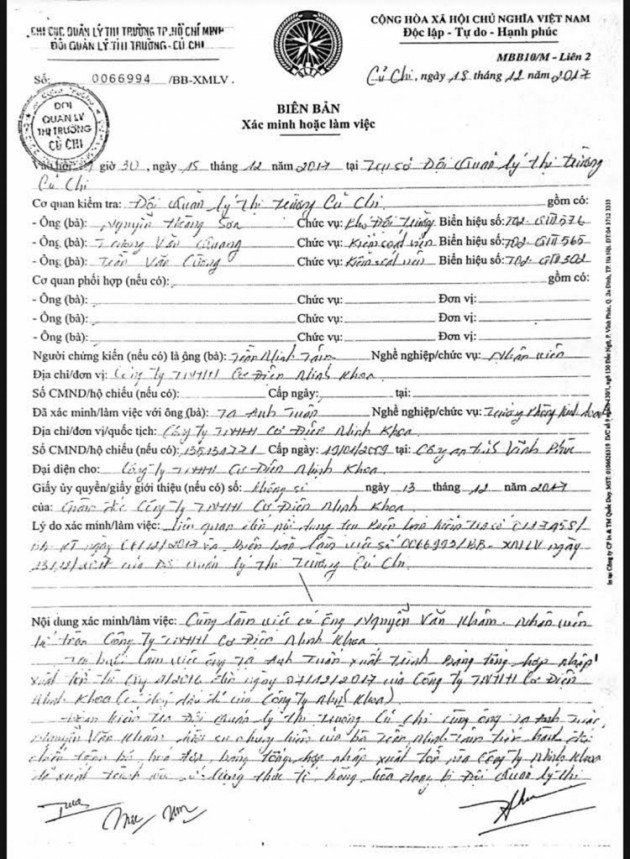 CHI CỤC QUẢN LÝ THỊ TRƯỜNG TP.HỒ CHÍ MINH
ĐỘI QUẢN LÝ THỊ TRƯỜNG - CỦ CHI
CỘNG HÒA XÃ HỘI CHỦ NGHĨA VIỆT NAM
Độc lập - Tự do - Hạnh phúc
MBB10/M - Liên 2
Số: 0066994 /BB-XMLV
Củ Chi, ngày 15 tháng 12 năm 2017
ĐỘI
QUẢN LÝ
THỊ TRƯỜNG
CỦ CHI
BIÊN BẢN
Xác minh hoặc làm việc
giờ 30, ngày 15 tháng 12 năm 2017 tại Trụ sở Đội Quản lý thị trường
Củ Chi
Cơ quan kiểm tra: Đội Quản lý thị trường Củ Chi gồm có:
- Ông (bà): Nguyễn Hoàng Sơn Chức vụ: Phó Đội Trưởng Biển hiệu số:
- Ông (bà): Trương Văn Quang Chức vụ: Kiểm soát viên Biển hiệu số:
- Ông (bà): Trần Văn Cường Chức vụ: Kiểm soát viên Biển hiệu số:
Cơ quan phối hợp (nếu có): gồm có:
- Ông (bà): Chức vụ: Đơn vị:
- Ông (bà): Chức vụ: Đơn vị:
- Ông (bà): Chức vụ: Đơn vị:
Người chứng kiến (nếu có) là ông (bà): Trần Minh Tâm Nghề nghiệp/chức vụ: Nhân viên
Địa chỉ/đơn vị: Công ty TNHH Cơ Điện Minh Khoa
Số CMND/hộ chiếu (nếu có): Cấp ngày: tại:
Đã xác minh/làm việc với ông (bà): Tạ Anh Tuấn Nghề nghiệp/chức vụ: Trưởng Phòng Kinh doanh
Địa chỉ/đơn vị/quốc tịch: Công ty TNHH Cơ Điện Minh Khoa
Số CMND/hộ chiếu (nếu có): Cấp ngày: tại: Công an tỉnh Vĩnh Phúc
Đại diện cho: Công ty TNHH Cơ Điện Minh Khoa
Giấy ủy quyền/giấy giới thiệu (nếu có) số: không số ngày 13 tháng 12 năm 2017
của: Giám đốc Công ty TNHH Cơ Điện Minh Khoa
Lý do xác minh/làm việc: Liên quan đến nội dung tại Biên bản kiểm tra số
ngày và Biên bản làm việc số 0066993/BB-XMLV ngày
của Đội Quản lý thị trường Củ Chi
Nội dung xác minh/làm việc: Cùng làm việc có ông Nguyễn Văn Khâm, Nhân viên
Công ty TNHH Cơ Điện Minh Khoa
Tại buổi làm việc ông Tạ Anh Tuấn xuất trình Bảng tổng hợp nhập
xuất tồn từ đến ngày 07/12/2017 của Công ty TNHH Cơ Điện
Minh Khoa (có đóng dấu của Công ty Minh Khoa)
Đoàn kiểm tra Đội Quản lý thị trường Củ Chi cùng ông Tạ Anh Tuấn,
Nguyễn Văn Khâm, chứng kiến của bà Trần Minh Tâm tiến hành đối
chiếu toàn bộ hóa đơn, bảng tổng hợp nhập xuất tồn mà Công ty Minh Khoa
đã xuất trình với số lượng thực tế hàng hóa đang bị Đội Quản lý thị